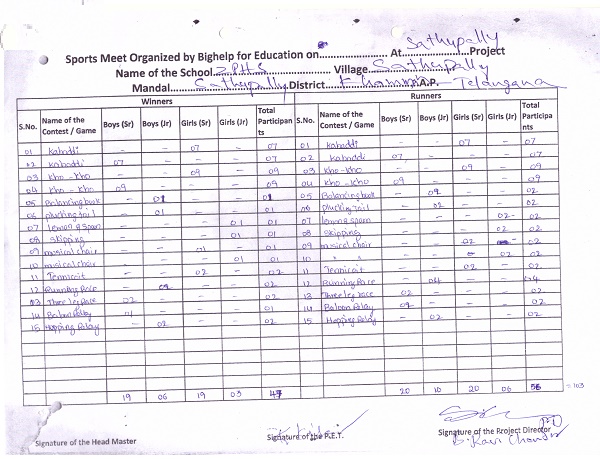 Sathupally
Sports Meet Organized by Bighelp for Education on............ At............Project
Name of the School ZPHS Village Sathupally
Mandal Sathupally District Khammam A.P. Telangana
Winners Runners
S.No. Name of the Contest / Game Boys (Sr) Boys (Jr) Girls (Sr) Girls (Jr) Total Participants S.No. Name of the Contest / Game Boys (Sr) Boys (Jr) Girls (Sr) Girls (Jr) Total Participants
01 kabaddi - - 07 - 07 01 kabaddi - - 07 - 07
02 kabaddi 07 - - - 07 02 kabaddi 07 - - - 07
03 kho-kho - - 09 - 09 03 kho-kho - - 09 - 09
04 kho-kho 09 - - - 09 04 kho-kho 09 - - - 09
05 Balancing book - 01 - - 01 05 Balancing book - 02 - - 02
06 plucking tail - 01 - - 01 06 plucking tail - 02 - - 02
07 lemon & spoon - - - 01 01 07 lemon & spoon - - - 02 02
08 skipping - - - 01 01 08 skipping - - - 02 02
09 musical chair - - 01 - 01 09 musical chair - - 02 - 02
10 musical chair - - - 01 01 10 " " - - - 02 02
11 Tennicoit - - 02 - 02 11 Tennicoit - - 02 - 02
12 Running Race - 02 - - 02 12 Running Race - 04 - - 04
13 Three leg race 02 - - - 02 13 Three leg race 02 - - - 02
14 Baloon Relay - - - 01 14 Baloon Relay 02 - - - 02
15 Hopping Relay - 02 - - 02 15 Hopping Relay - 02 - - 02
19 06 19 03 47 20 10 20 06 56 = 103
Signature of the Head Master Signature of the P.E.T. Signature of the Project Director